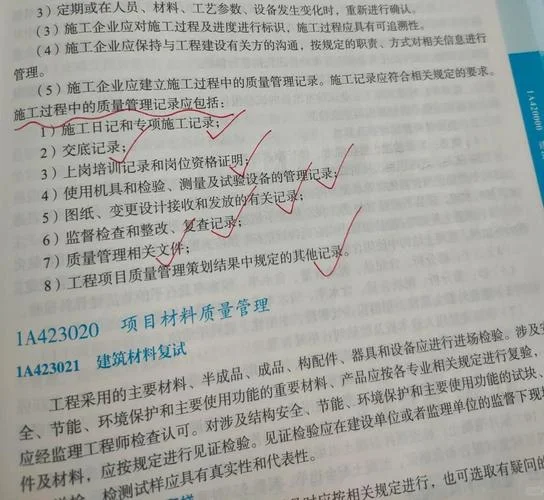 3）定期或在人员、材料、工艺参数、设备发生变化时，重新进行确认。
（3）施工企业应对施工过程及进度进行标识，施工过程应具有可追溯性。
（4）施工企业应保持与工程建设有关方的沟通，按规定的职责、方式对相关信息进行
管理。
（5）施工企业应建立施工过程中的质量管理记录。施工记录应符合相关规定的要求。
施工过程中的质量管理记录应包括：
1）施工日记和专项施工记录；
2）交底记录；
3）上岗培训记录和岗位资格证明；
4）使用机具和检验、测量及试验设备的管理记录；
5）图纸、变更设计接收和发放的有关记录；
6）监督检查和整改、复查记录；
7）质量管理相关文件；
8）工程项目质量管理策划结果中规定的其他记录。
1A423020 项目材料质量管理
1A423021 建筑材料复试
工程采用的主要材料、半成品、成品、构配件、器具和设备应进行进场检验。涉及安
全、节能、环境保护和主要使用功能的重要材料、产品应按各专业相关规定进行复验，
应经监理工程师检查认可。对涉及结构安全、节能、环境保护和主要使用功能的试块、
件及材料，应按规定进行见证检验。见证检验应在建设单位或者监理单位的监督下现
检测试样应具有真实性和代表性。
应按相关规定进行，也可选取有疑问的
1A420000